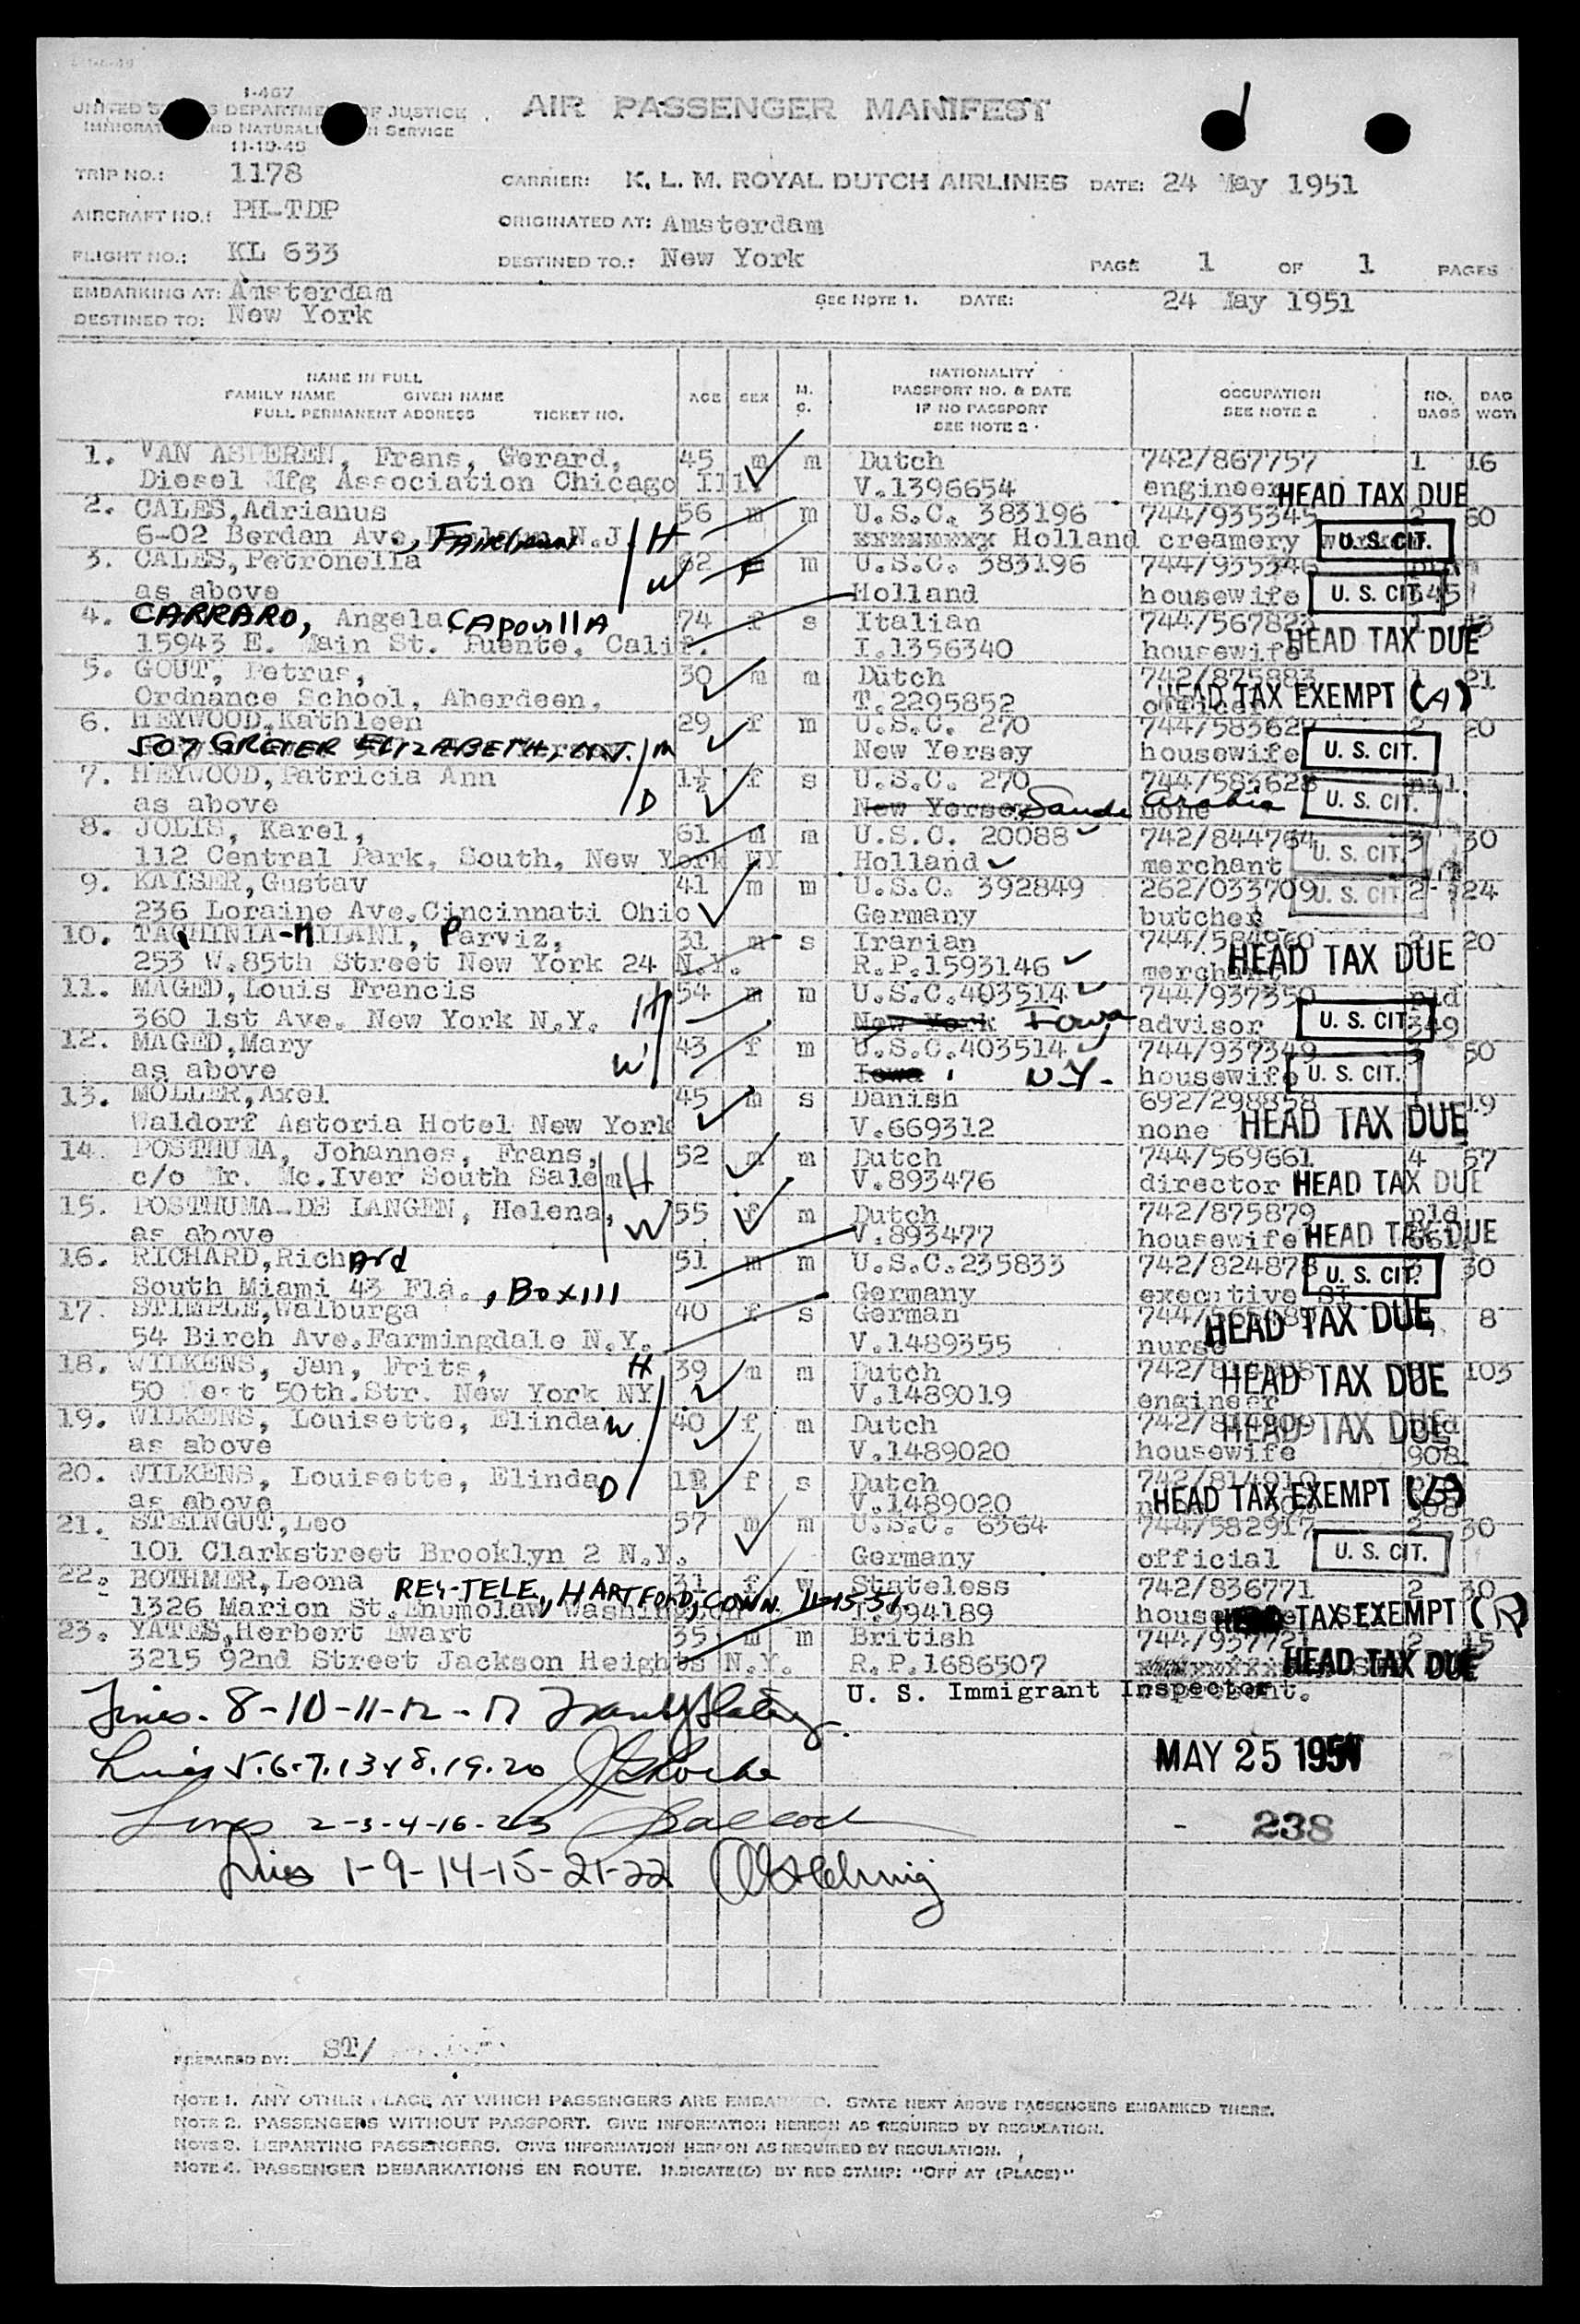 I-467
UNITED DEPARTMENT OF JUSTICE
IMMIGRATION AND NATURALIZATION SERVICE
11-10-49
AIR PASSENGER MANIFEST
TRIP NO.: 1178 CARRIER: K. L. M. ROYAL DUTCH AIRLINES DATE: 24 May 1951
AIRCRAFT NO.: PH-TDP ORIGINATED AT: Amsterdam
FLIGHT NO.: KL 633 DESTINED TO.: New York PAGE 1 OF 1 PAGES
EMBARKING AT: Amsterdam SEE NOTE 1. DATE: 24 May 1951
DESTINED TO: New York
NAME IN FULL
FAMILY NAME GIVEN NAME
FULL PERMANENT ADDRESS TICKET NO.
AGE SEX M. S.
NATIONALITY
PASSPORT NO. & DATE
IF NO PASSPORT
SEE NOTE 2
OCCUPATION
SEE NOTE 2
NO. BAGS BAG WGT.
1. VAN ASPEREN, Frans, Gerard, 45 m m Dutch 742/867757 1 16
Diesel Mfg Association Chicago Ill. V.1396654 engineer HEAD TAX DUE
2. CALES, Adrianus 56 m m U.S.C. 383196 744/935345 2 60
6-02 Berdan Ave, Fairlawn N.J H Holland creamery U. S. CIT.
3. CALES, Petronella 62 F m U.S.C. 383196 744/935346
as above W Holland housewife U. S. CIT. 345
4. CARRARO, Angela CAPOVILLA 74 f s Italian 744/567823
15943 E. Main St. Puente, Calif. I.1356340 housewife HEAD TAX DUE
5. GOUT, Petrus, 30 m m Dutch 742/875883 1 21
Ordnance School, Aberdeen, T.2295852 officer HEAD TAX EXEMPT (A)
6. HEYWOOD, Kathleen 29 f m U.S.C. 270 744/583627 2 20
507 GREIER ELIZABETH, N.J. M New Yersey housewife U. S. CIT.
7. HEYWOOD, Patricia Ann 1½ f s U.S.C. 270 744/583628 nil
as above D New Yersey Saudi Arabia none U. S. CIT.
8. JOLIS, Karel, 61 m m U.S.C. 20088 742/844764 3 30
112 Central Park, South, New York NY Holland merchant U. S. CIT.
9. KAISER, Gustav 41 m m U.S.C. 392849 262/033709 2 24
236 Loraine Ave. Cincinnati Ohio Germany butcher U. S. CIT.
10. TAQUINIA-MILANI, Parviz, 31 m s Iranian 744/584960 20
253 W.85th Street New York 24 N.Y. R.P.1593146 merchant HEAD TAX DUE
11. MAGED, Louis Francis 54 m m U.S.C.403514 744/937350 pld
360 1st Ave. New York N.Y. H New York Iowa advisor U. S. CIT. 349
12. MAGED, Mary 43 f m U.S.C.403514 744/937349 3 50
as above W Iowa N.Y. housewife U. S. CIT.
13. MÖLLER, Axel 45 m s Danish 692/298858 1 19
Waldorf Astoria Hotel New York V.669312 none HEAD TAX DUE
14. POSTHUMA, Johannes, Frans, 52 m m Dutch 744/569661 4 57
c/o Mr. Mc.Iver South Salem H V.893476 director HEAD TAX DUE
15. POSTHUMA-DE LANGEN, Helena, W 55 f m Dutch 742/875879 pld
as above V.893477 housewife HEAD TAX DUE 661
16. RICHARD, Richard 51 m m U.S.C.235833 742/824878 30
South Miami 43 Fla., BOX 111 Germany executive U. S. CIT.
17. STIMPLE, Walburga 40 f s German 8
54 Birch Ave. Farmingdale N.Y. V.1489355 nurse HEAD TAX DUE
18. WILKENS, Jan, Frits, H 39 m m Dutch 103
50 West 50th.Str. New York NY V.1489019 engineer HEAD TAX DUE
19. WILKENS, Louisette, Elinda W 40 f m Dutch 742/814909 pld
as above V.1489020 housewife HEAD TAX DUE 908
20. WILKENS, Louisette, Elinda D 12 f s Dutch 742/814910
as above V.1489020 HEAD TAX EXEMPT 908
21. STEINGUT, Leo 57 m m U.S.C. 6364 744/582917 2 30
101 Clarkstreet Brooklyn 2 N.Y. Germany official U. S. CIT.
22. BOTHMER, Leona 31 f w Stateless 742/836771 2 30
REY-TELE., HARTFORD, CONN. 11-15-51
1326 Marion St. Enumclaw Washington I.994189 HEAD TAX EXEMPT (R)
23. YATES, Herbert Ewart 35 m m British 744/937721 2 15
3215 92nd Street Jackson Heights N.Y. R.P.1686507 HEAD TAX DUE
Lines - 8-10-11-12-17
U. S. Immigrant Inspector
Lines 5.6.7.13.18.19.20
MAY 25 1951
Lines 2-3-4-16-23
- 238
Lines 1-9-14-15-21-22
PREPARED BY: ST/
NOTE 1. ANY OTHER PLACE AT WHICH PASSENGERS ARE EMBARKED. STATE NEXT ABOVE PASSENGERS EMBARKED THERE.
NOTE 2. PASSENGERS WITHOUT PASSPORT. GIVE INFORMATION HEREON AS REQUIRED BY REGULATION.
NOTE 3. DEPARTING PASSENGERS. GIVE INFORMATION HEREON AS REQUIRED BY REGULATION.
NOTE 4. PASSENGER DEBARKATIONS EN ROUTE. INDICATE(D) BY RED STAMP: "OFF AT (PLACE)"